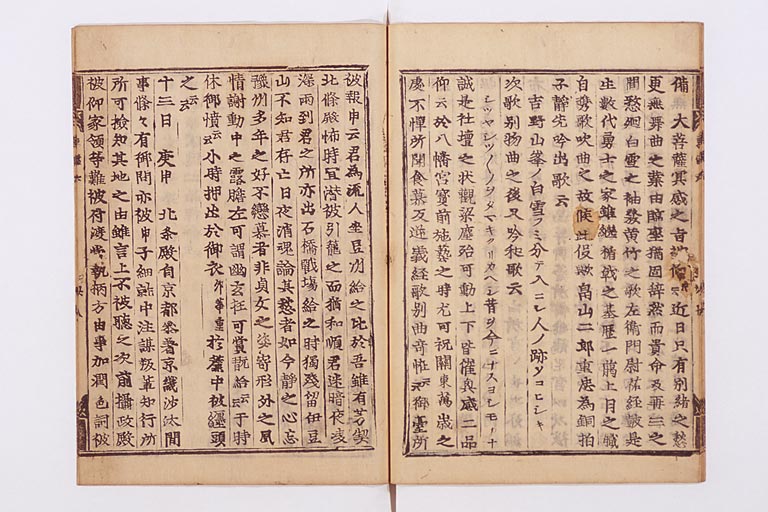 備 大菩薩冥感之旨被仰云近日只有別緒之愁
更無舞曲之業由臨座猶固辞然而貴命及再三之
間憖廻白雪之袖發黄竹之歌左衛門尉祐経鼓是
生數代勇士之家雖継楯戟之基歴一﨟上日之職
自携歌吹曲之故候此役歟畠山二郎重忠為銅拍
子静先吟出歌云
吉野山峯ノ白雪フミ分テ入ニシ人ノ跡ソコヒシキ
次歌別物曲之後又吟和歌云
シツヤシツシツノヲタマキクリカヘシ昔ヲ今ニナスヨシモカナ
誠是社壇之壮觀梁塵殆可動上下皆催興感二品
仰云於八幡宮寳前施藝之時尤可祝關東萬歳之
處不憚所聞食慕反逆義経歌別曲奇恠云云御臺所
被報申云君為流人坐豆州給之比於吾雖有芳契
北條殿怖時宜潜被引籠之而猶和順君迷暗夜凌
深雨到君之所亦出石橋戰場給之時獨殘留伊豆
山不知君存亡日夜消魂論其愁者如今靜之心忘
豫州多年之好不戀慕者非貞女之姿寄形外之風
情謝動中之露膽尤可謂幽玄抂可賞翫給云云于時
休御憤云云小時押出於御衣卯花重於簾外被纏頭
之云云
十三日 庚申 北条殿自京都参着京畿沙汰間
事條々有御問亦被申子細就中注謀叛輩知行所
所可撿知其地之由雖言上不被聽之次前攝政殿
被仰家領等難被付渡當執柄方由事加潤色詞被